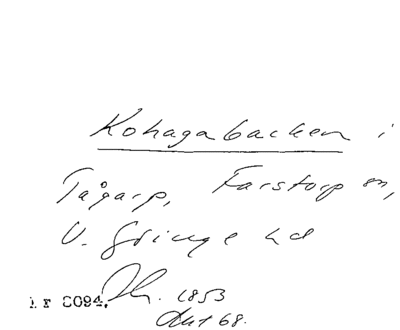 Kohagabacken i
Tågarp, Farstorp sn,
V. Göinge hd
1853
68.